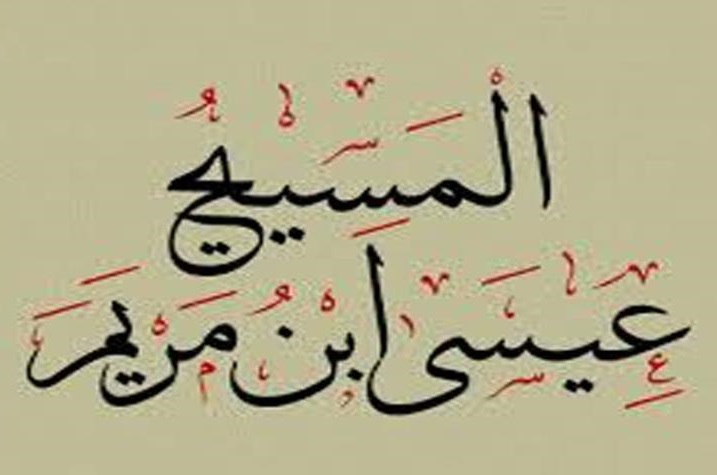 الْمَسِيحُ
عِيسَى ابْنُ مَرْيَمَ